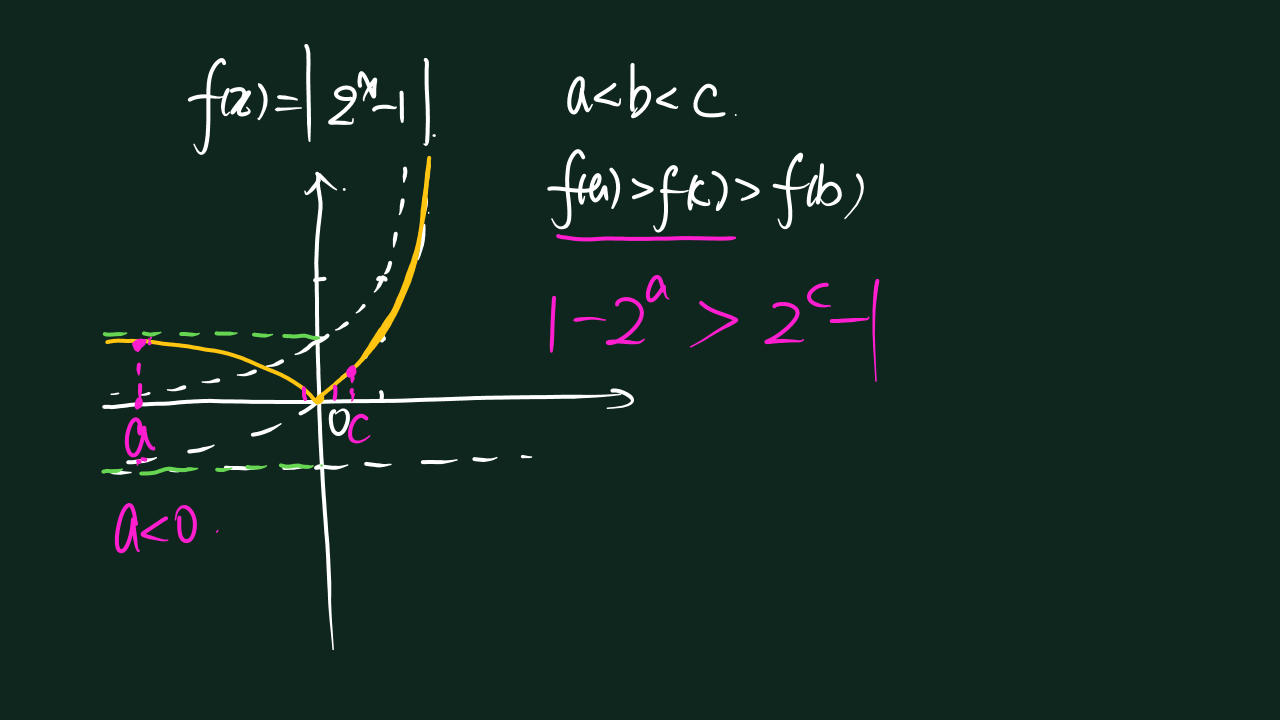 f(x)=|2^x-1|.
a<b<c.
f(a)>f(c)>f(b)
1-2^a > 2^c-1
0
a
c
a<0.